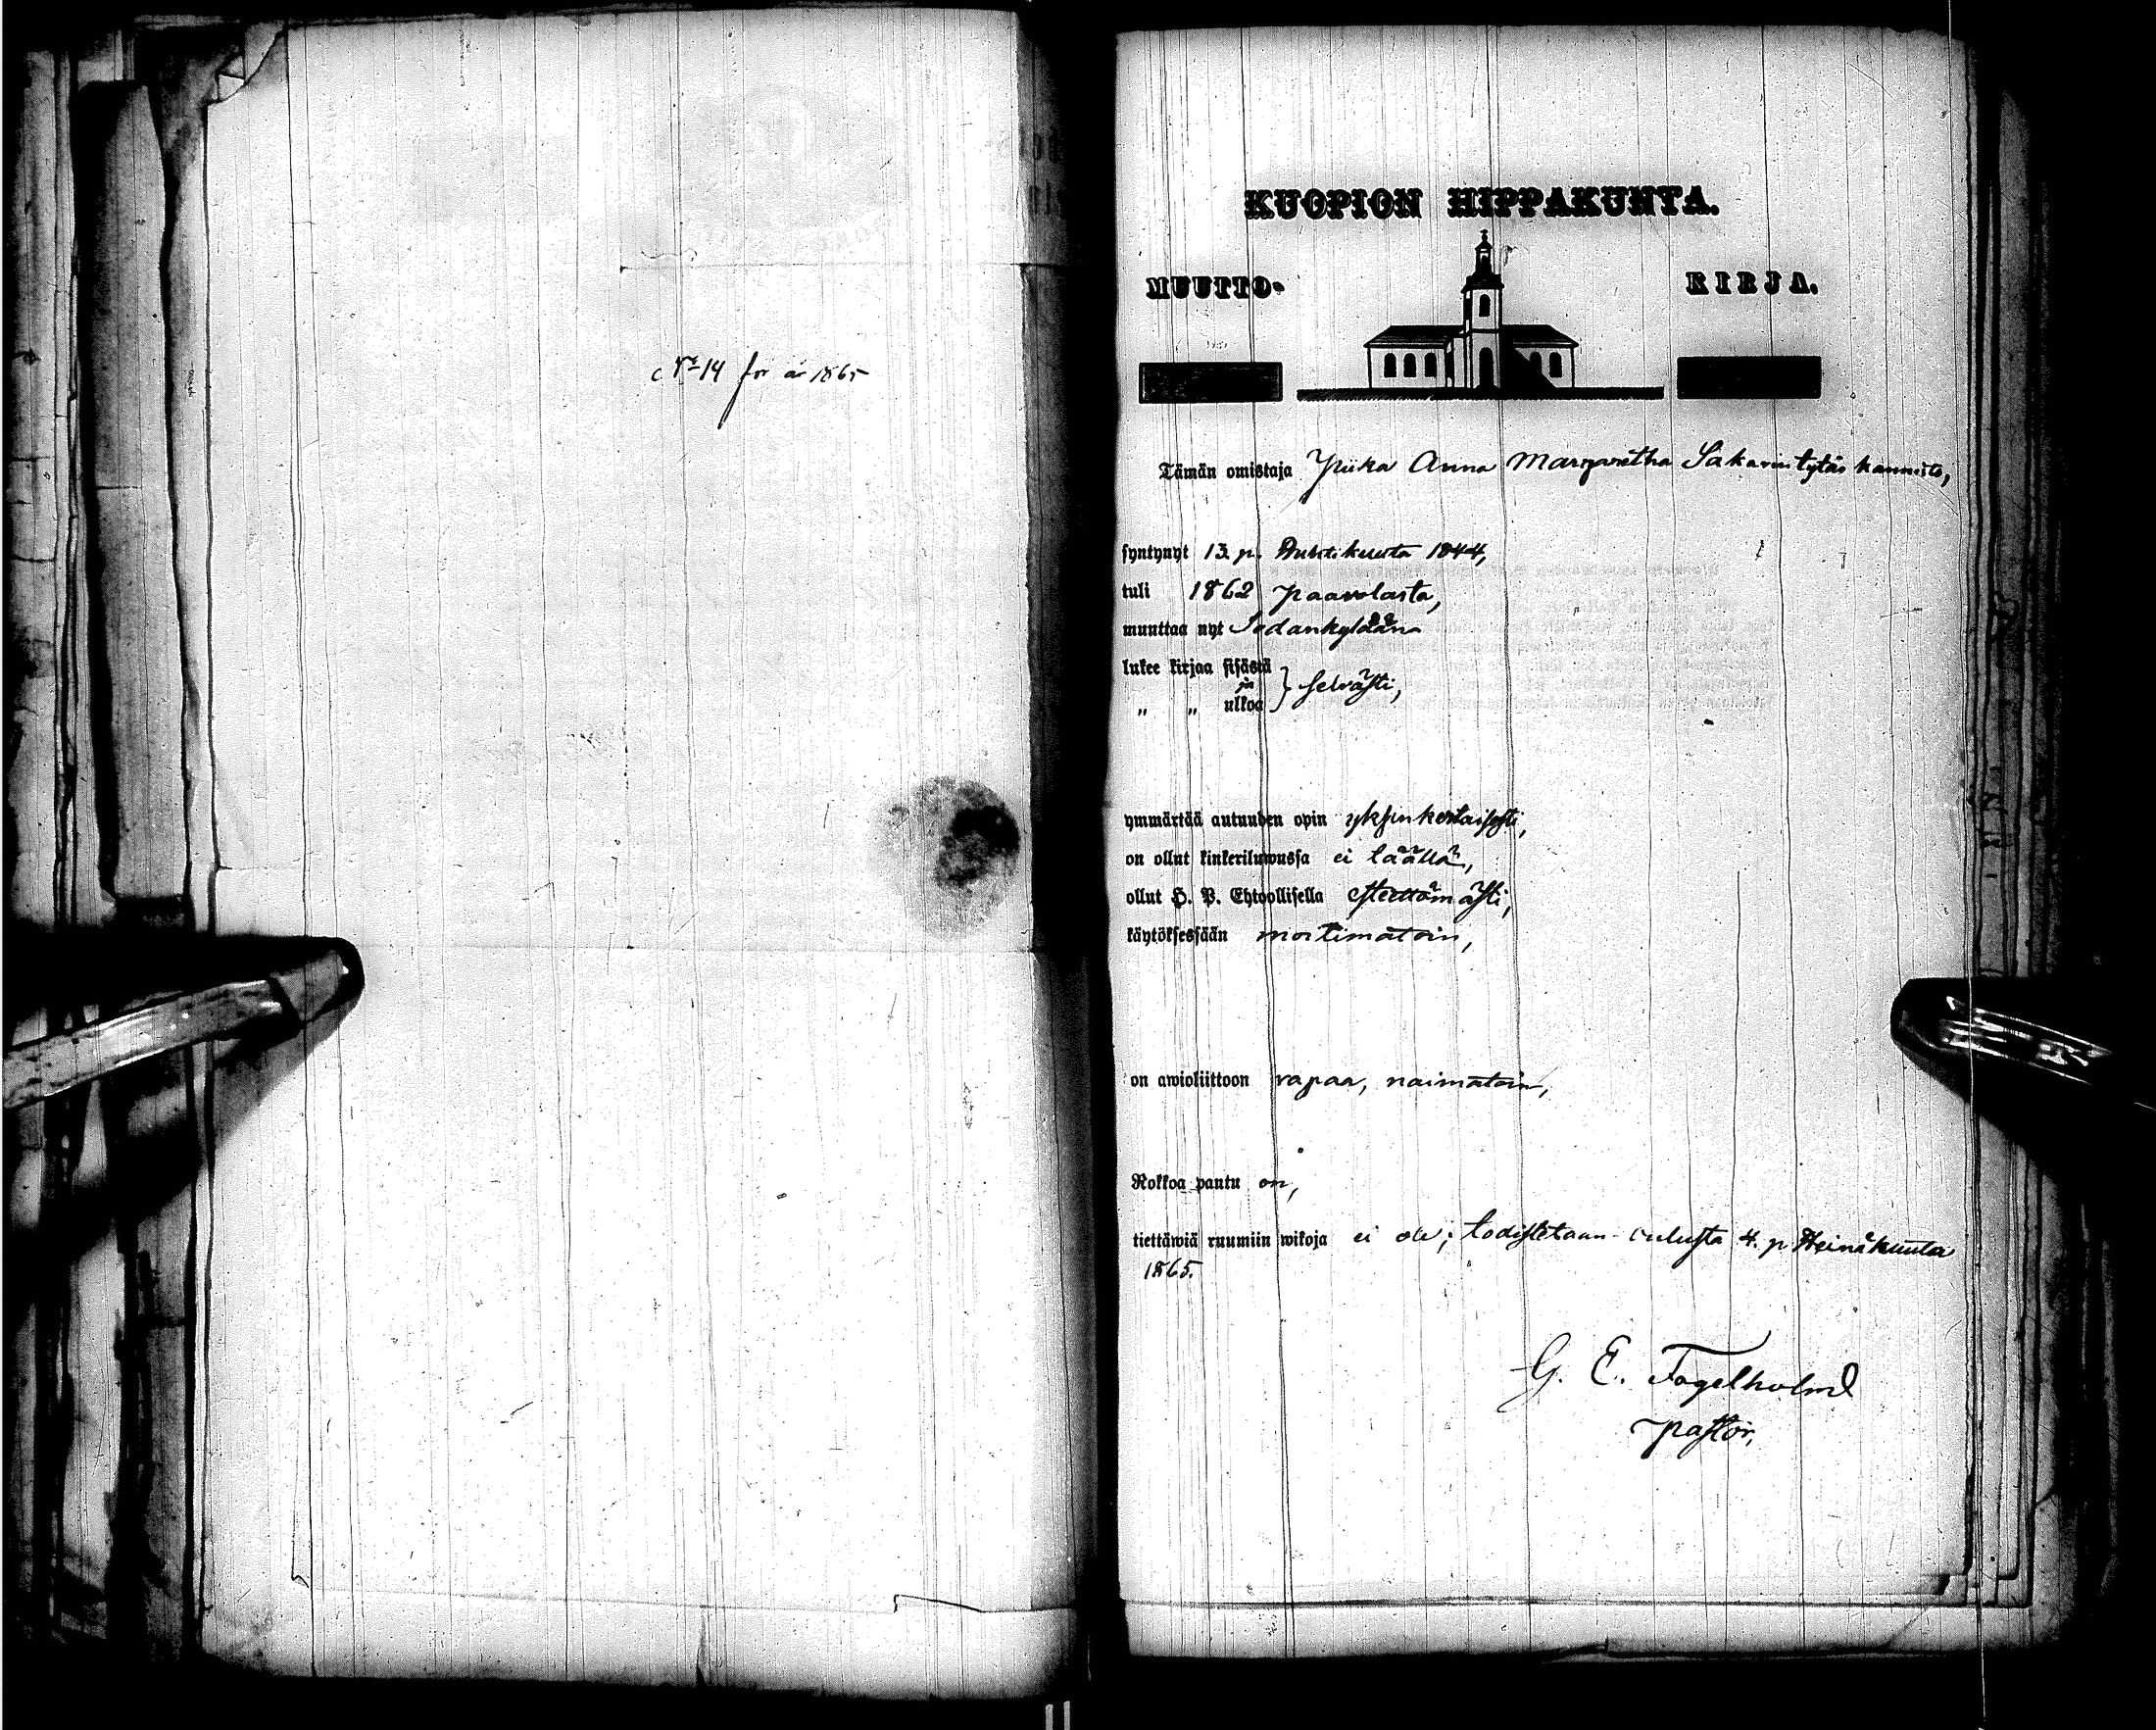 No 14 för år 1865
KUOPION HIPPAKUNTA.
MUUTTO- KIRJA.
Tämän omistaja Piika Anna Margaretha Sakarintytär kannisto,
syntynyt 13. p. Huhtikuuta 1844,
tuli 1862 Paavolasta,
muuttaa nyt Sodankylään
lukee kirjaa sisästä
ja } selvästi,
„ „ ulkoa
ymmärtää autuuden opin yksinkertaisesti,
on ollut kinkeriluwussa ei täällä,
ollut H. P. Ehtoollisella esteettömästi,
käytöksessään moitimatoin,
on awioliittoon vapaa, naimatoin,
Rokkoa pantu on,
tiettäwiä ruumiin wikoja ei ole; todistetaan Oulusta 4. p Heinäkuuta
1865.
G. E. Fogelholm
pastor,